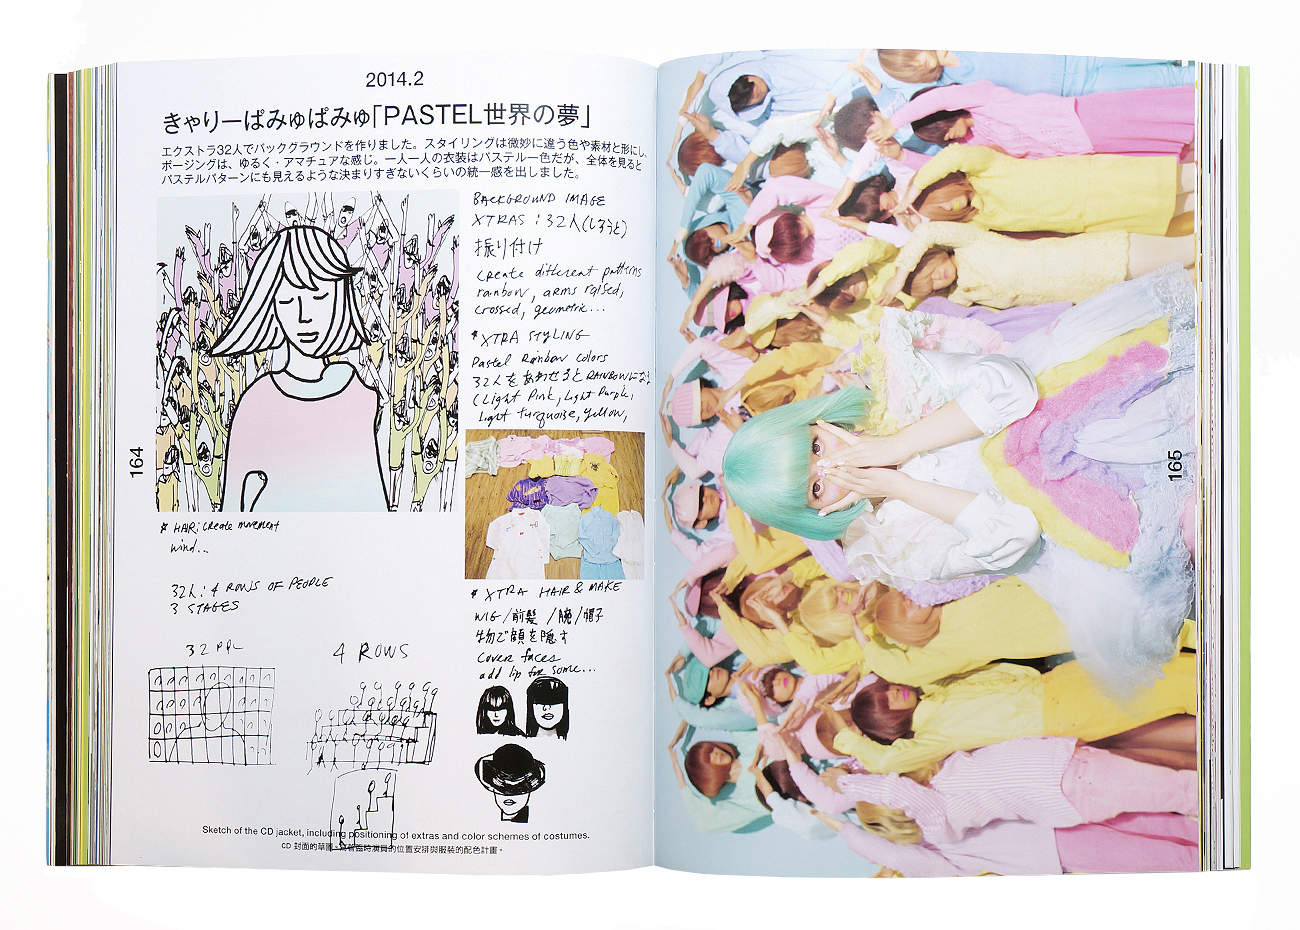 2014.2
きゃりーぱみゅぱみゅ「PASTEL世界の夢」
エクストラ32人でバックグラウンドを作りました。スタイリングは微妙に違う色や素材と形にし、
ポージングは、ゆるく・アマチュアな感じ。一人一人の衣装はパステル一色だが、全体を見ると
パステルパターンにも見えるような決まりすぎないくらいの統一感を出しました。
BACKGROUND IMAGE
XTRAS : 32人(しろうと)
振り付け
create different patterns
rainbow, arms raised,
crossed, geometric...
* XTRA STYLING
Pastel Rainbow colors
32人をあわせるとRAINBOWになる
(Light Pink, Light Purple,
Light turquoise, yellow,
164
* HAIR: create movement
wind...
32人: 4 ROWS OF PEOPLE
3 STAGES
32 PPL
4 ROWS
* XTRA HAIR & MAKE
WIG/前髪/腕/帽子
物で顔を隠す
cover faces
add lip for some...
Sketch of the CD jacket, including positioning of extras and color schemes of costumes.
CD 封面的草圖。臨時演員的位置安排與服裝的配色計畫。
165